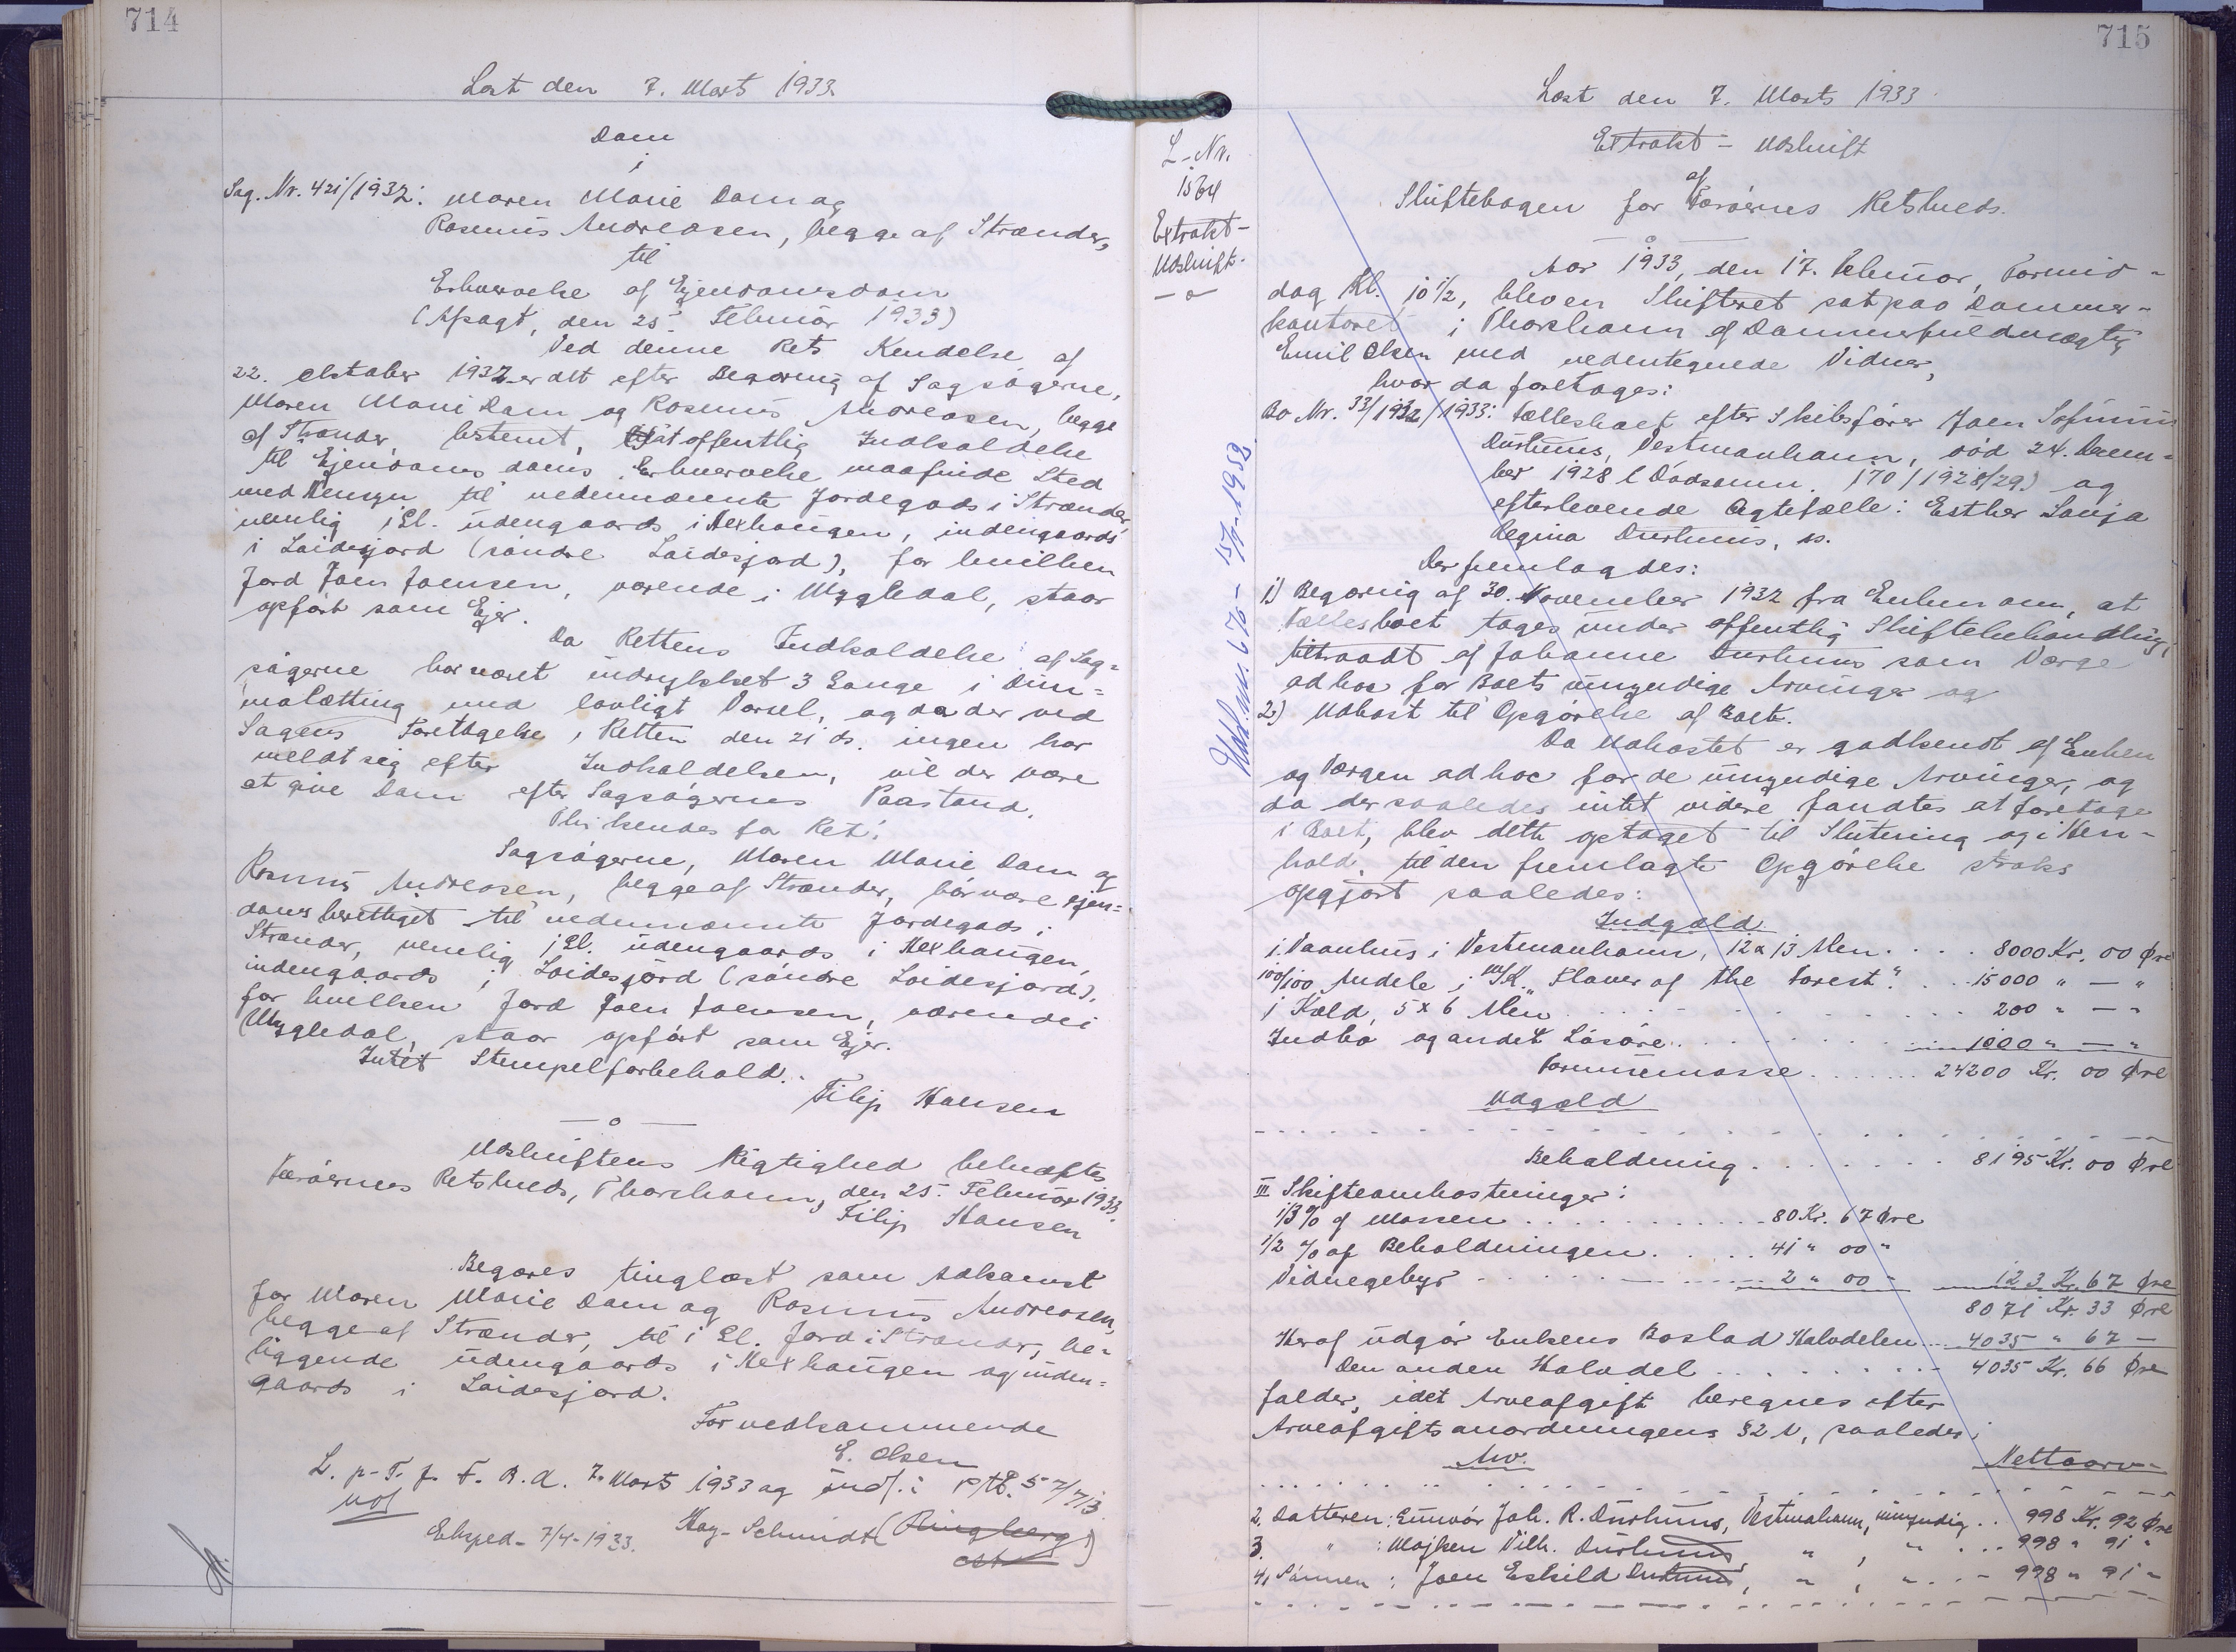 714
Læst den 7. Marts 1933.
Dom
i
Sag. Nr. 421/1932: Maren Marie Dam og
Rasmus Andreasen, begge af Strænder,
til
Erhvervelse af Ejendomsdom
(Afsagt, den 25. Februar 1933)
Ved denne Rets Kendelse af
22. Oktober 1932 er det efter Begæring af Sagsøgerne,
Maren Marie Dam og Rasmus Andreasen, begge
af Strænder, bestemt, at offentlig Indkaldelse
til Ejendoms doms Erhvervelse maa finde Sted
med Hensyn til nedennævnte Jordegods i Strænder,
nemlig 1 Gl. udengaards i Hexhaugen, indengaards
i Loidesjord (søndre Loidesjord), for hvilken
Jord Joen Joensen, værende i Mygledal, staar
opført som Ejer.
Da Rettens Indkaldelse af Sag-
søgerne har været indrykket 3 Gange i Dim-
malætting med lovligt Varsel, og da der ved
Sagens Foretagelse i Retten den 21 ds. ingen har
meldt sig efter Indkaldelsen, vil der være
at give Dom efter Sagsøgernes Paastand.
Thi kendes for Ret:
Sagsøgerne, Maren Marie Dam og
Rasmus Andreasen, begge af Strænder, bør være ejen-
doms berettiget til nedennævnte Jordegods i
Strænder, nemlig 1 Gl. udengaards i Hexhaugen,
indengaards i Loidesjord (søndre Loidesjord),
for hvilken Jord Joen Joensen, værende i
Mygledal, staar opført som Ejer.
Intet Stempelforbehold.
Filip Hansen
— o —
Udskriftens Rigtighed bekræftes
Færøernes Retskreds, Thorshavn, den 25. Februar 1933.
Filip Hansen
Begæres tinglæst som Adkomst
for Maren Marie Dam og Rasmus Andreasen,
begge af Strænder, til 1 Gl. Jord i Strænder, be-
liggende udengaards i Hexhaugen og inden-
gaards i Loidesjord.
For vedkommende
E. Olsen
L. p. T. f. F. R. d. 7. Marts 1933 og indf. i
Eksped. 7/4-1933. Hay-Schmidt (Ringberg)
cst
715
Læst den 7. Marts 1933
L-Nr.
1564
Extrakt-
Udskrift.
— o —
15/7-1952
Extrakt - Udskrift
af
Skiftebogen for Færøernes Retskreds.
— o —
Aar 1933, den 17. Februar, Formid-
dag Kl. 10 1/2, blev en Skifteret sat paa Dommer-
kontoret i Thorshavn af Dommerfuldmægtig
Emil Olsen med nedentegnede Vidner,
hvor da foretoges:
Bo Nr. 33/1932/1933: Fællesboet efter Skibsfører Joen Sofinius
Durhuus, Vestmanhavn, død 24. Decem-
ber 1928 (Dødsanm. 170/1928/29) og
efterlevende Ægtefælle: Esther Sonja
Regina Durhuus, ss.
Der fremlagdes:
1) Begæring af 30. November 1932 fra Enken om, at
Fællesboet tages under offentlig Skiftebehandling,
tiltraadt af Johanne Durhuus som Værge
ad hoc for Boets umyndige Arvinger og
2) Udkast til Opgørelse af Boet.
Da Udkastet er godkendt af Enken
og Værgen ad hoc for de umyndige Arvinger, og
da der saaledes intet videre fandtes at foretage
i Boet, blev dette optaget til Slutning og i Hen-
hold til den fremlagte Opgørelse straks
opgjort saaledes:
Indgæld
1 Vaanhus i Vestmanhavn, 12 x 13 Alen . . . . 8000 Kr. 00 Øre
100/100 Andele i M/K. "Flower of the Forest" . . . 15000 " — "
1 Kæld, 5 x 6 Alen . . . . 200 " — "
Indbo og andet Løsøre . . . . 1000 " — "
Formuemasse . . . . 24200 Kr. 00 Øre
Udgæld
Beholdning . . . . 8195 Kr. 00 Øre
III Skifteomkostninger:
1/3 % af Massen . . . . 80 Kr. 67 Øre
1/2 % af Beholdningen . . . . 41 " 00 "
Vidnegebyr . . . . 2 " 00 " 123 Kr. 67 Øre
8071 Kr. 33 Øre
Heraf udgør Enkens Boslod Halvdelen . . . 4035 " 67 —
Den anden Halvdel . . . . 4035 Kr. 66 Øre
falder, idet Arveafgift beregnes efter
Arveafgiftsanordningens § 2 A, saaledes:
Arv. Nettoarv
2. Datteren: Eunvør Joh. R. Durhuus, Vestmahavn, umyndig . . 998 Kr. 92 Øre
3. " : Majken Vilh. Durhuus " , " . . . 998 " 91 "
4. Sønnen : Joen Eskild Durhuus, " , " . . . 998 " 91 "